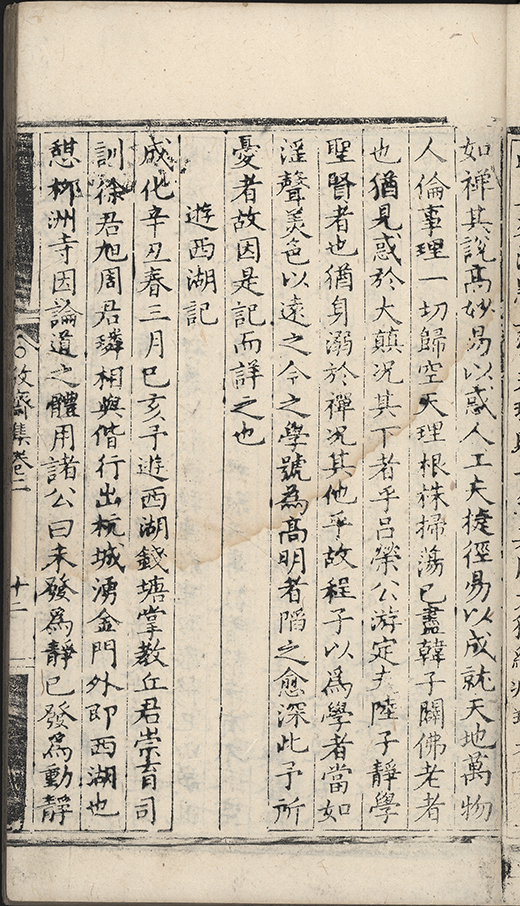 如禪其說高妙易以惑人工夫捷徑易以成就天地萬物
人倫事理一切歸空天理根株掃蕩已盡韓子闢佛老者
也猶見惑於大顛况其下者乎呂榮公游定夫陸子靜學
聖賢者也猶身溺於禪况其他乎故程子以爲學者當如
淫聲美色以遠之今之學號為高明者陷之愈深此予所
憂者故因是記而詳之也
遊西湖記
成化辛丑春三月巳亥予遊西湖錢塘掌教丘君崇育司
訓徐君旭周君璘相與偕行出杭城湧金門外即西湖也
憇柳洲寺因論道之體用諸公曰未發爲靜已發爲動靜
敬齋集卷二
十二